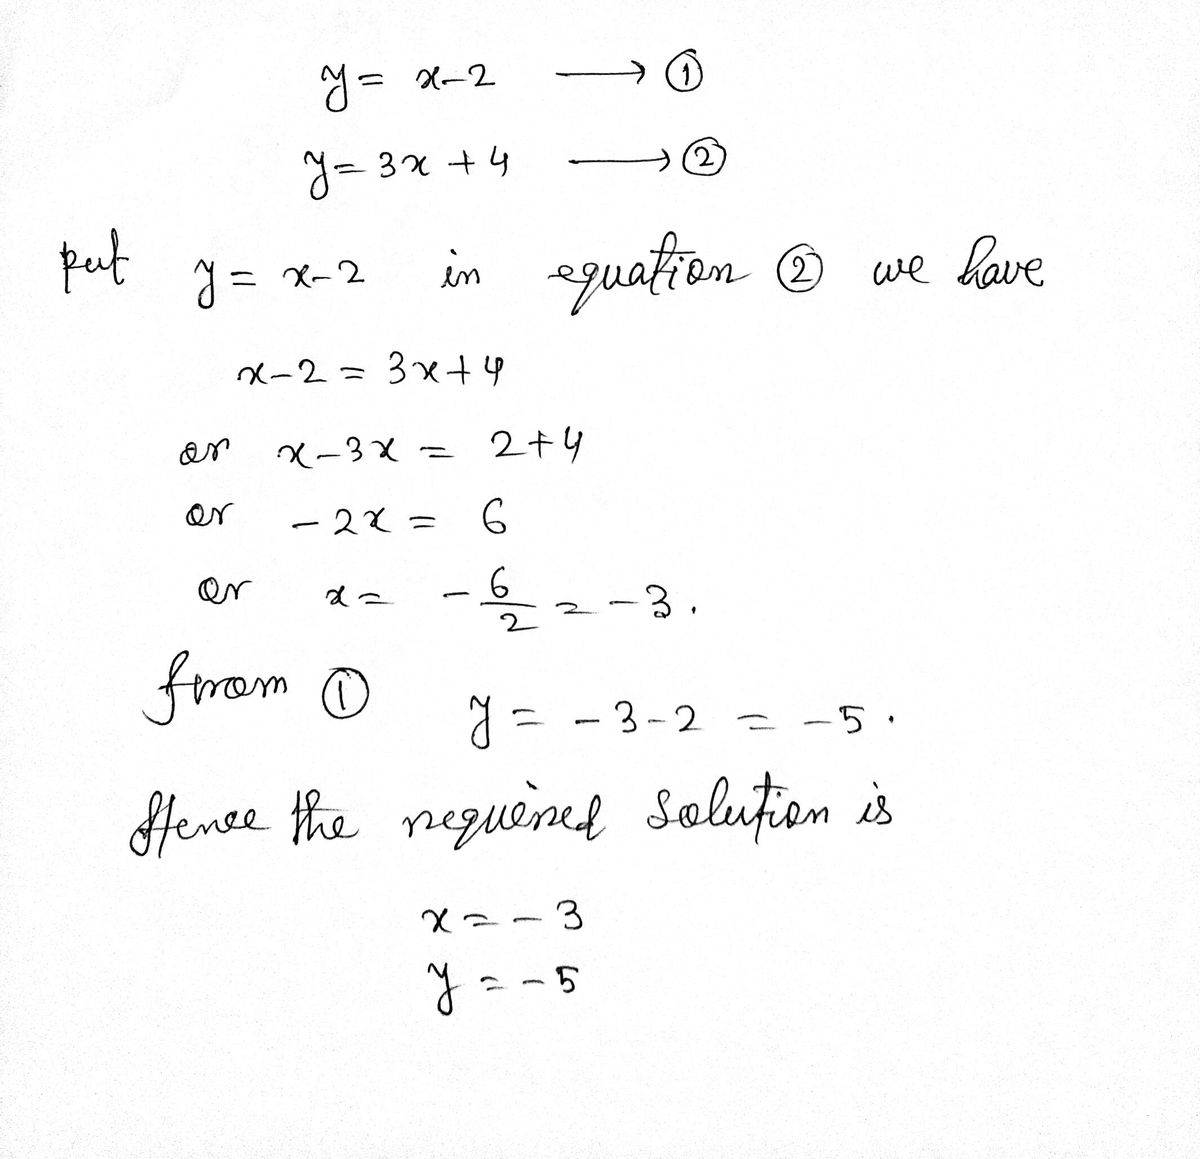 y = x-2 ⟶ ①
y = 3x + 4 ⟶ ②
put y = x-2 in equation ② we have
x-2 = 3x+4
or x-3x = 2+4
or -2x = 6
or x = -6/2 = -3.
from ① y = -3-2 = -5.
Hence the required solution is
x = -3
y = -5